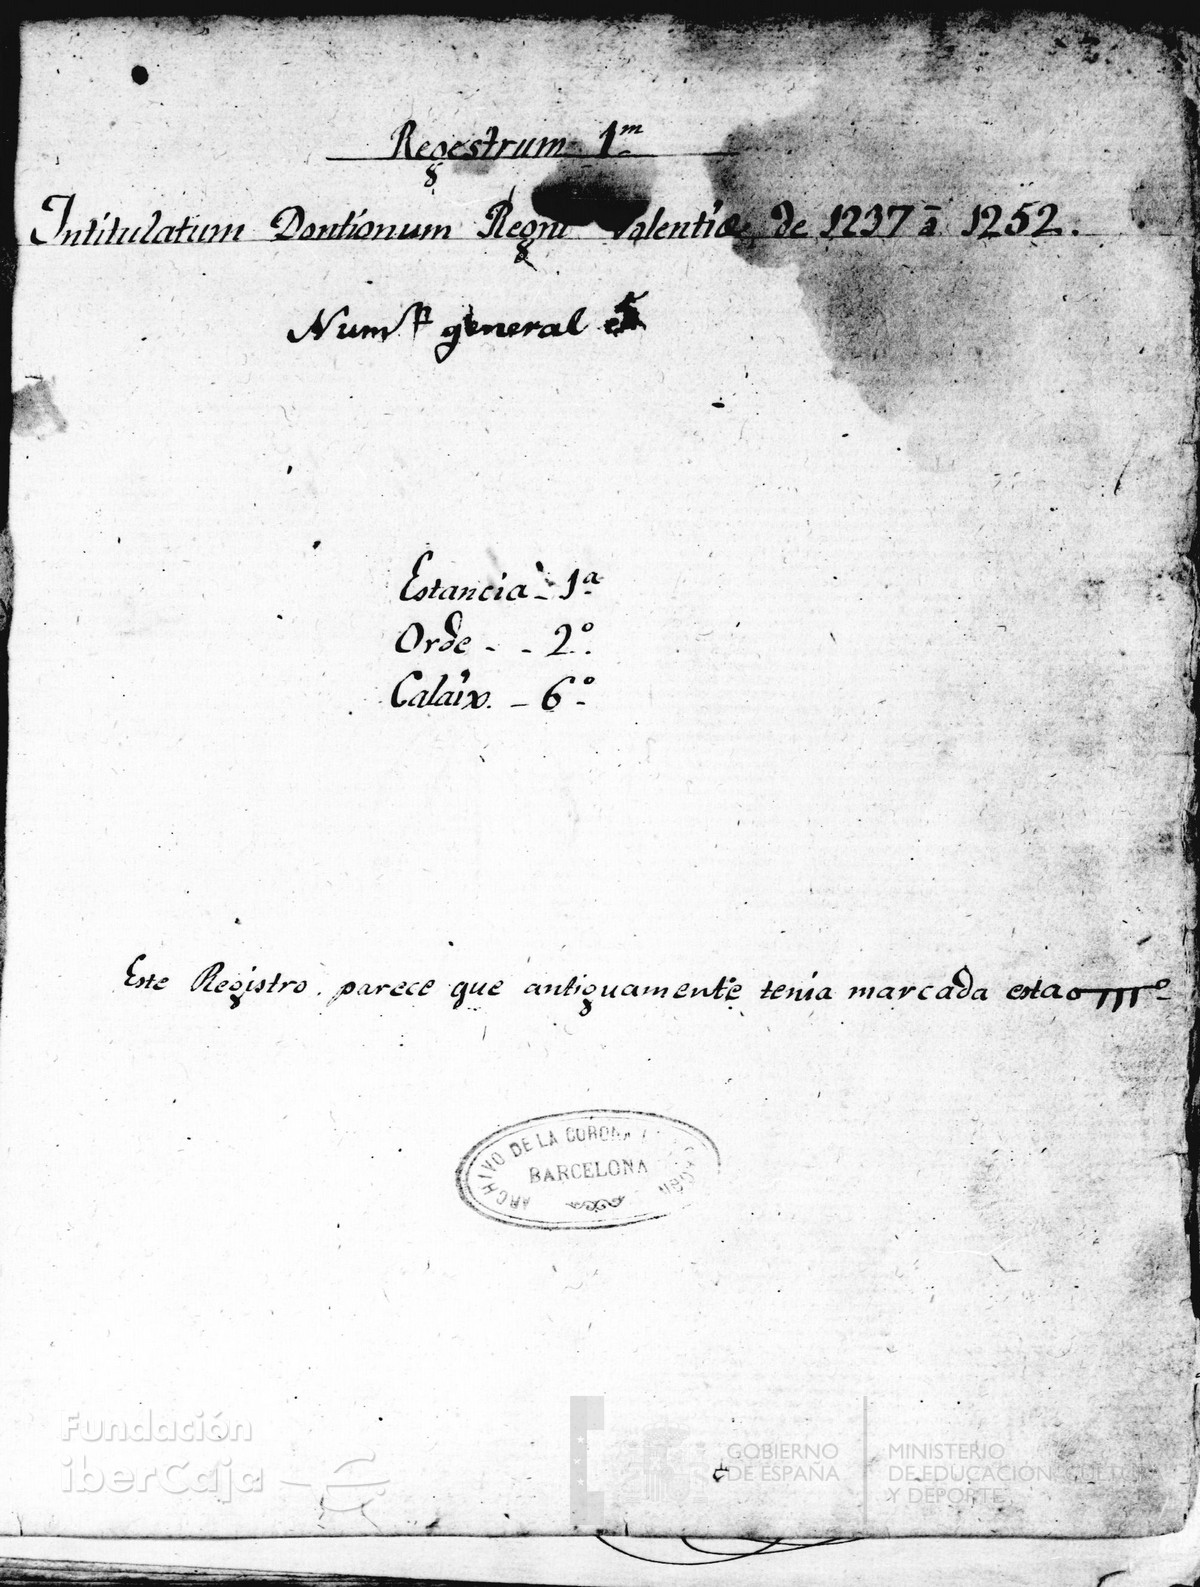 Regestrum 1.m
Intitulatum Dontionum Regni Valentiæ de 1237 â 1252.
Num.º general 5
Estancia - 1.ª
Orde - - 2.º
Calaix. - 6.º
Este Registro parece que antiguamente tenia marcada esta
ARCHIVO DE LA CORONA DE ARAGON
BARCELONA
Fundación
iberCaja
GOBIERNO
DE ESPAÑA
MINISTERIO
DE EDUCACIÓN, CULTURA
Y DEPORTE